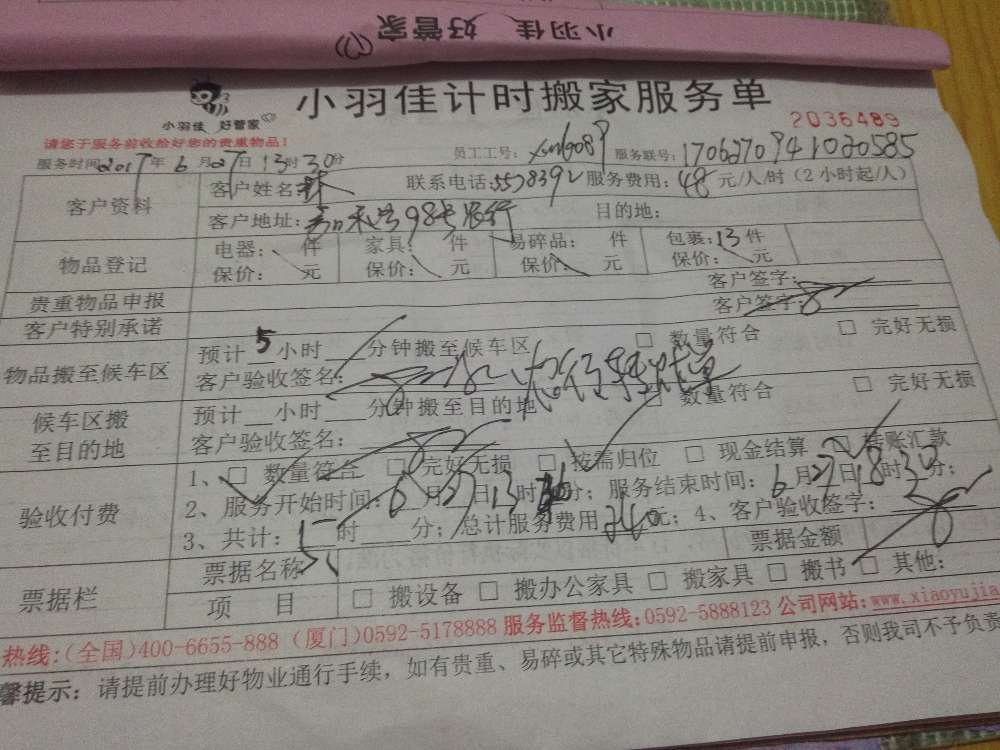 小羽佳 好管家
小羽佳 好管家
小羽佳计时搬家服务单
2036489
请您于服务前收给好您的贵重物品!
服务时间:2017年6月27日13时30分 员工工号: 服务联号:1706270941020585
客户资料 客户姓名: 联系电话:5578392 服务费用:48元/人/时(2小时起/人)
客户地址: 98号 目的地:
物品登记 电器: 件 家具: 件 易碎品: 件 包裹:13件
保价: 元 保价: 元 保价: 元 保价: 元
贵重物品申报 客户签字:
客户特别承诺 客户签字:
物品搬至候车区 预计5小时 分钟搬至候车区 □ 数量符合 □ 完好无损
客户验收签名:
候车区搬至目的地 预计 小时 分钟搬至目的地 □ 数量符合 □ 完好无损
客户验收签名:
验收付费 1、□ 数量符合 □ 完好无损 □ 按需归位 □ 现金结算 □ 转账汇款
2、服务开始时间:6月27日13时30分;服务结束时间:6月27日18时30分;
3、共计:5时 分;总计服务费用240元;4、客户验收签字:
票据栏 票据名称 票据金额
项 目 □ 搬设备 □ 搬办公家具 □ 搬家具 □ 搬书 □ 其他:
热线:(全国)400-6655-888 (厦门)0592-5178888 服务监督热线:0592-5888123 公司网站:www.xiaoyujia
馨提示:请提前办理好物业通行手续,如有贵重、易碎或其它特殊物品请提前申报,否则我司不予负责